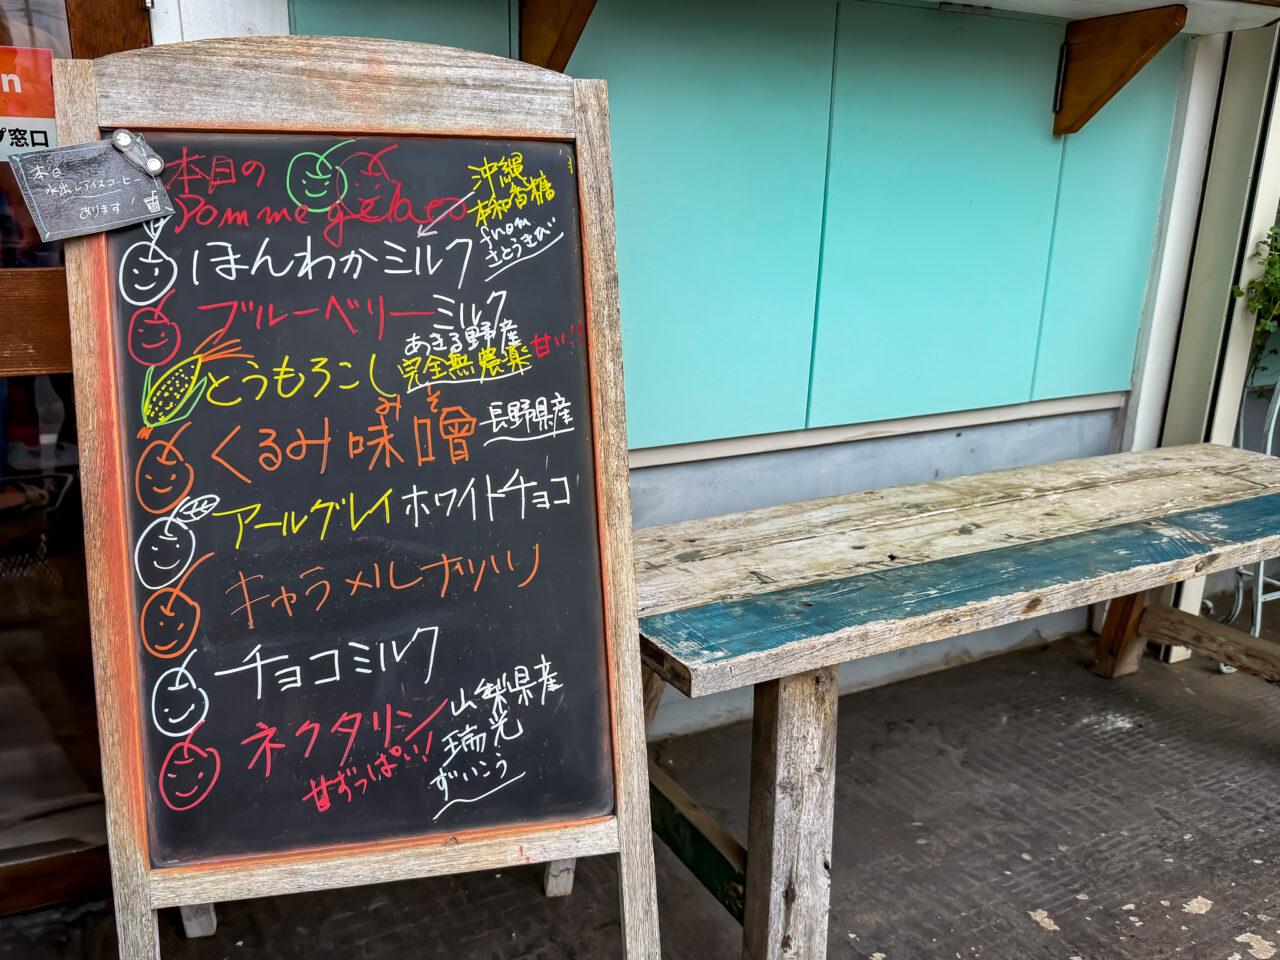 n
プ窓口
本日
水出しアイスコーヒー
あります!
本日の
Pomme gelato
沖縄
本和香糖
from
さとうきび
ほんわかミルク
ブルーベリーミルク
あきる野産
とうもろこし 完全無農薬 甘い!!
みそ
くるみ味噌 長野県産
アールグレイホワイトチョコ
キャラメルナッツ
チョコミルク
ネクタリン 山梨県産
瑞光
甘ずっぱい! ずいこう